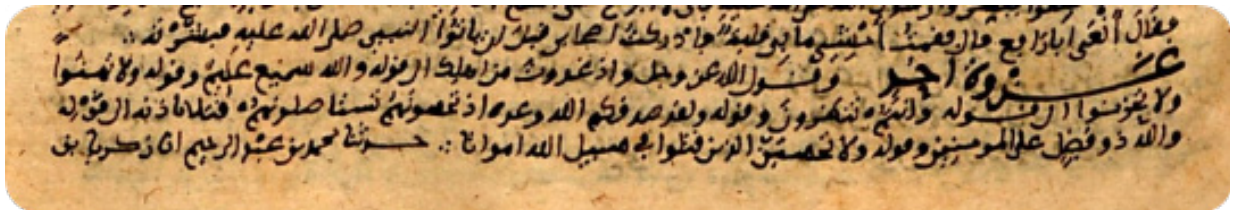 فقال أنعى ابا رافع قال فقمت أمشي ما بي قلبة فادركت اصحابي قبل ان ياتوا النبي صلى الله عليه فبشرته
غزوة احد وقول الله عز وجل واذ غدوت من اهلك الى قوله والله سميع عليم وقوله ولا تهنوا
ولا تحزنوا الى قوله وانتم تنظرون وقوله ولقد صدقكم الله وعده اذ تحسونهم تستاصلونهم قتلا باذنه الى قوله
والله ذو فضل على المومنين وقوله ولا تحسبن الذين قتلوا في سبيل الله امواتا حدثنا محمد بن عبد الرحيم انا زكريا بن